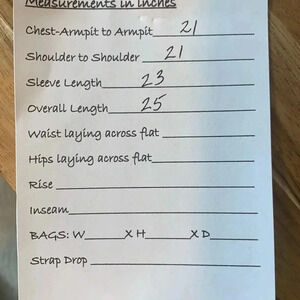 Measurements in inches
Chest-Armpit to Armpit 21
Shoulder to Shoulder 21
Sleeve Length 23
Overall Length 25
Waist laying across flat
Hips laying across flat
Rise
Inseam
BAGS: W X H X D
Strap Drop